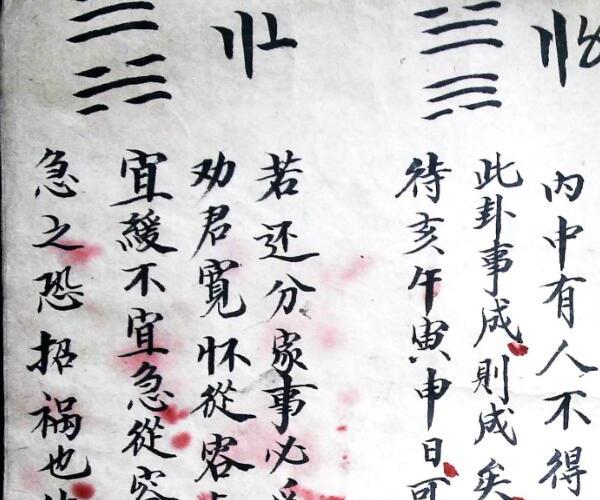 内中有人不得
此卦事成則成矣
待亥午寅申日可
若还分家事必
劝君寬怀從容
宜緩不宜急從容
急之恐招禍也